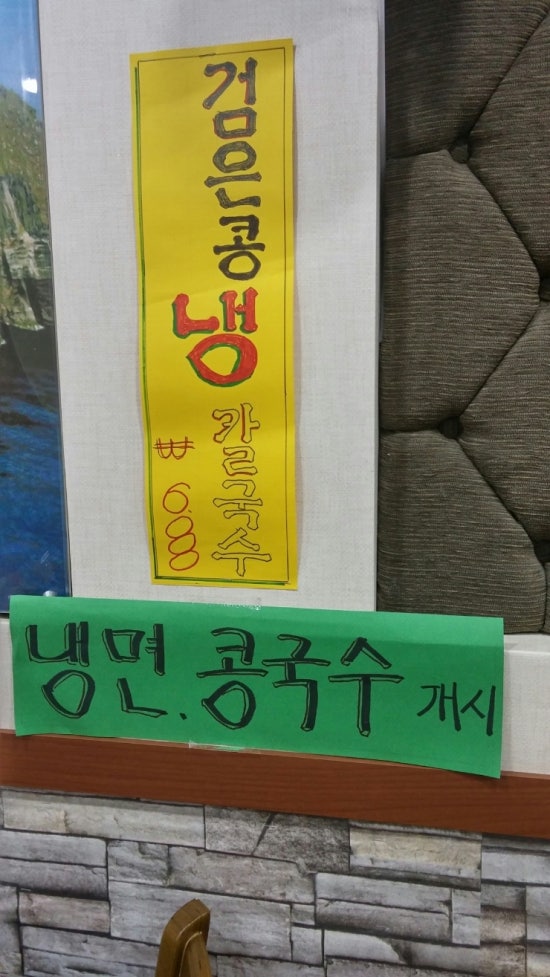 검은콩 냉 칼국수
₩ 6.000
냉면. 콩국수 개시